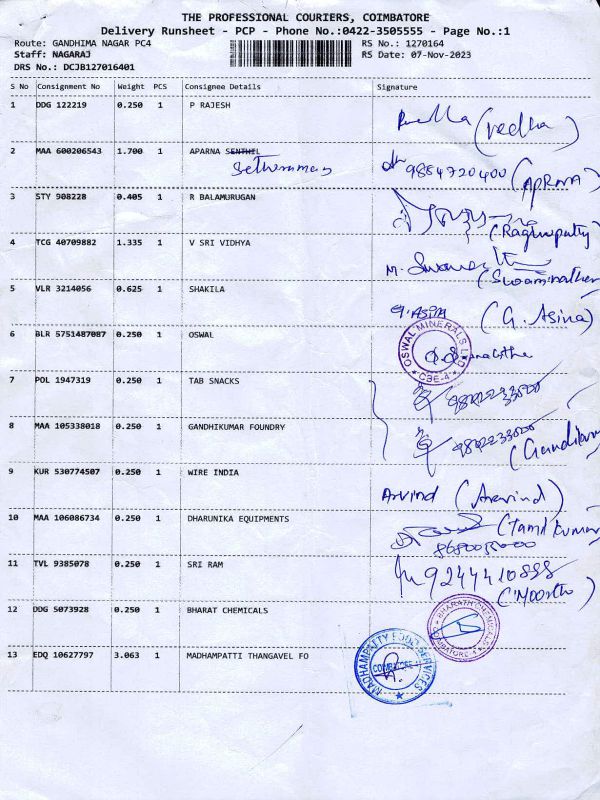 THE PROFESSIONAL COURIERS, COIMBATORE
Delivery Runsheet - PCP - Phone No.:0422-3505555 - Page No.:1
Route: GANDHIMA NAGAR PC4 RS No.: 1270164
Staff: NAGARAJ RS Date: 07-Nov-2023
DRS No.: DCJB127016401
S No Consignment No Weight PCS Consignee Details Signature
1 DDG 122219 0.250 1 P RAJESH
(vedha)
2 MAA 600206543 1.700 1 APARNA SENTHIL
9884720400 (APRNA)
3 STY 908228 0.405 1 R BALAMURUGAN
(Raghupathy)
4 TCG 40709882 1.335 1 V SRI VIDHYA
M. (Swaminathen
5 VLR 3214056 0.625 1 SHAKILA
(G. Asina)
6 BLR 5751487087 0.250 1 OSWAL
OSWAL MINERALS LTD CBE-4
7 POL 1947319 0.250 1 TAB SNACKS
9842233000
8 MAA 105338018 0.250 1 GANDHIKUMAR FOUNDRY
9842233000
9 KUR 530774507 0.250 1 WIRE INDIA
Arvind (Aravind)
10 MAA 106086734 0.250 1 DHARUNIKA EQUIPMENTS
(Tamil Kumar
11 TVL 9385078 0.250 1 SRI RAM
(Moorthi)
12 DDG 5073928 0.250 1 BHARAT CHEMICALS
13 EDQ 10627797 3.063 1 MADHAMPATTI THANGAVEL FO
MADHAMPATTY FOOD SERVICES
COIMBATORE